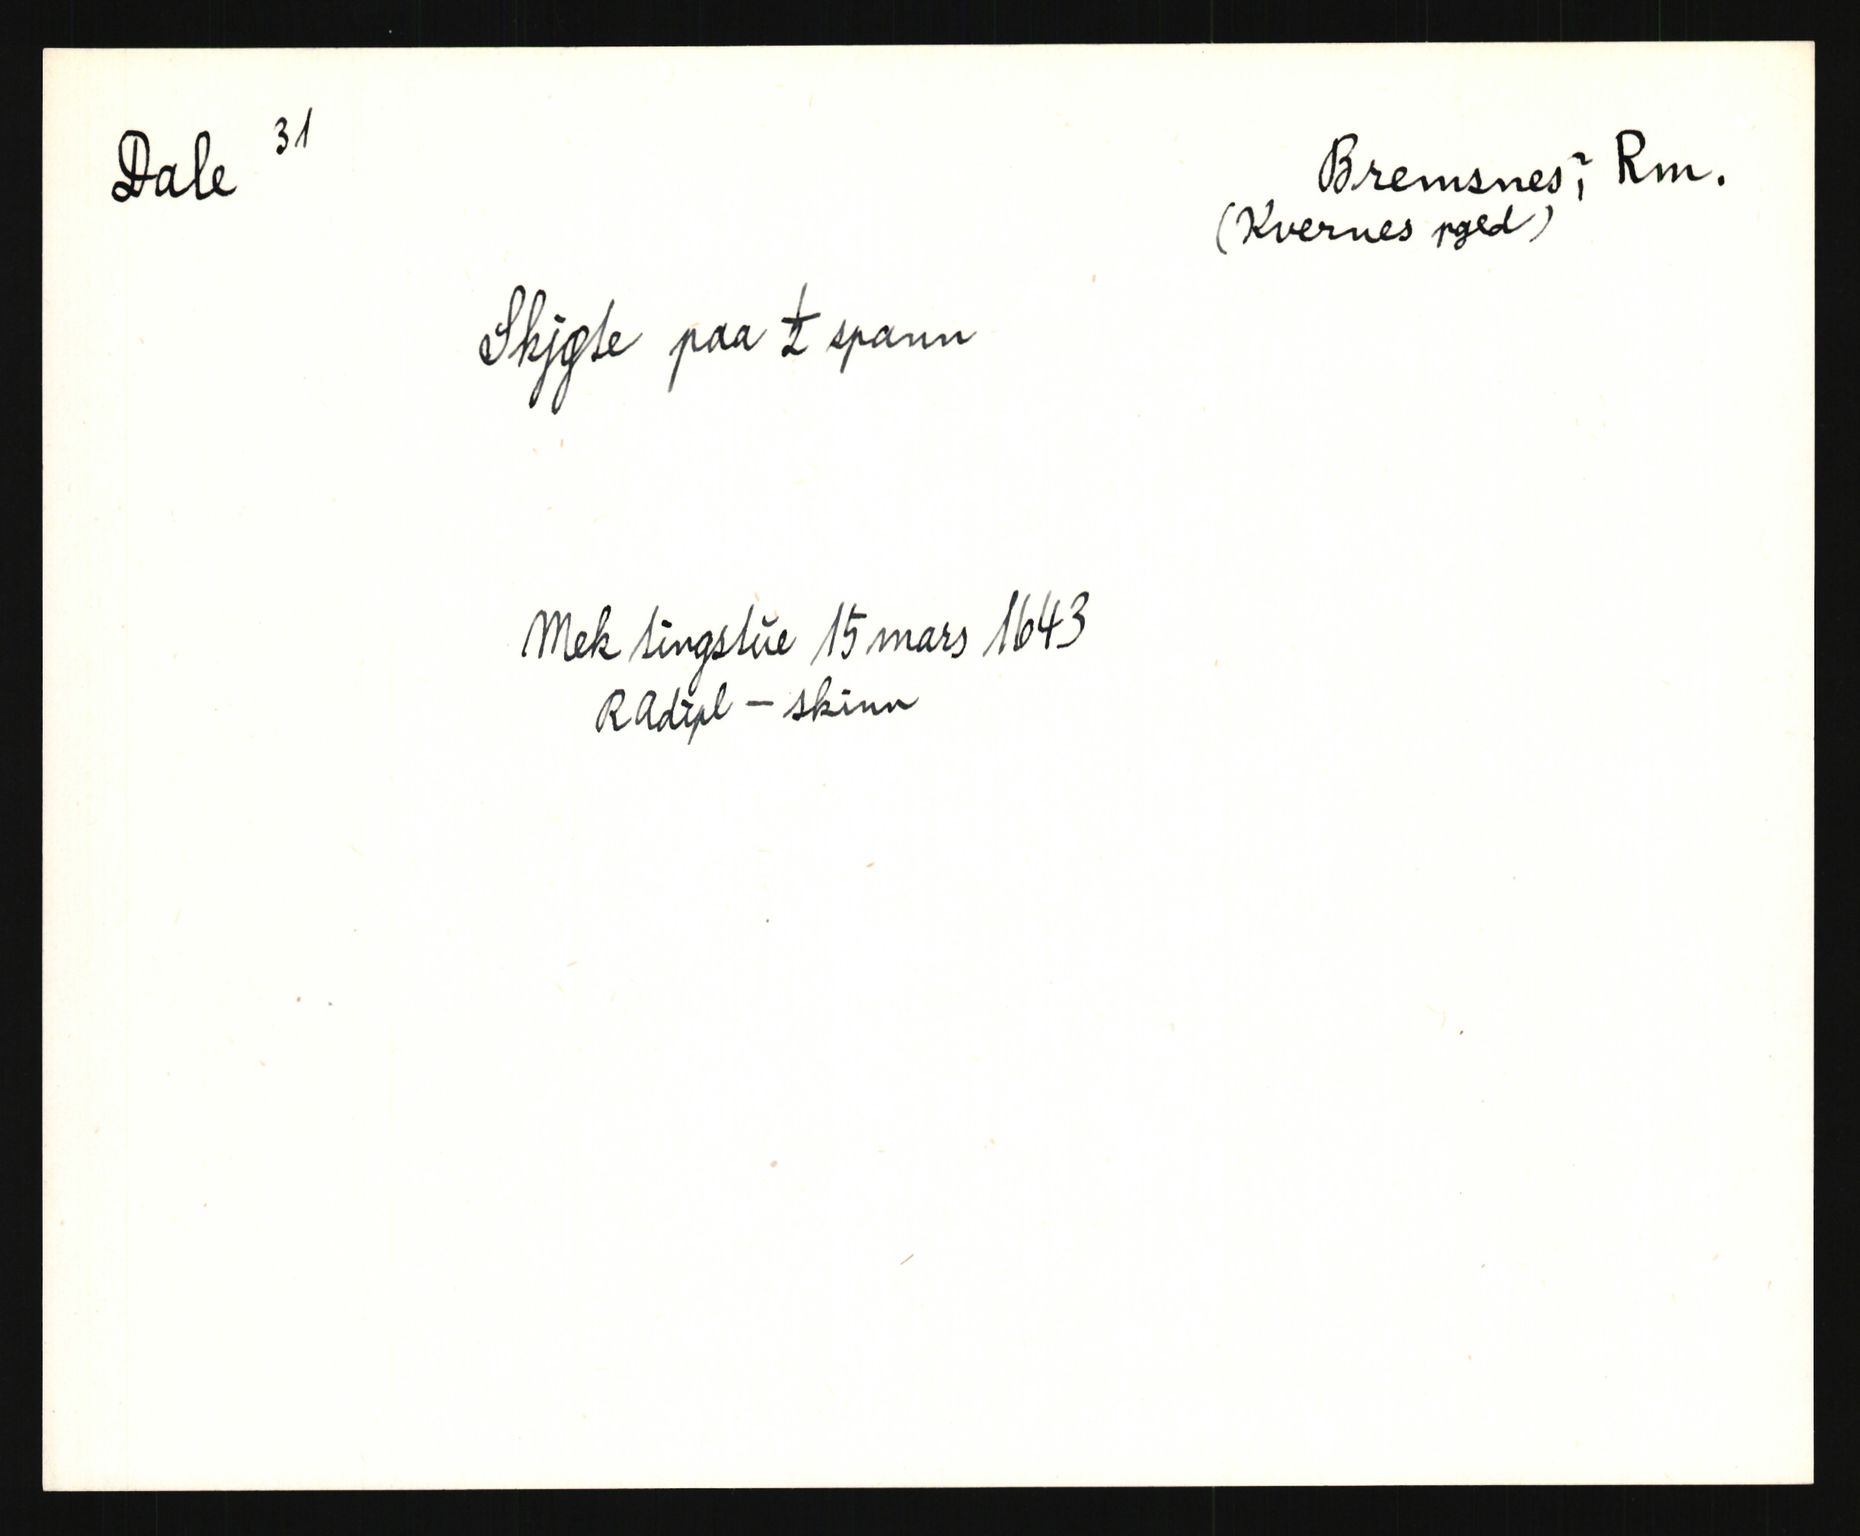 Dale 31
Bremsnes, Rm.
(Kvernes pged)
Skjøte paa 1/2 spann
Mek tingstue 15 mars 1643
RAdipl - skinn